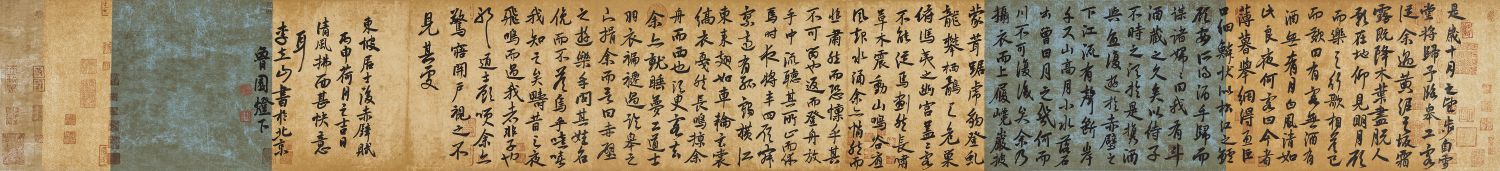 是歲十月之望步自雪
堂將歸于臨皋二客
從余過黃泥之坂霜
露既降木葉盡脫人
影在地仰見明月顧
而樂之行歌相荅已
而歎曰有客無酒有
酒無肴月白風清如
此良夜何客曰今者
薄暮舉網得魚巨
口細鱗狀如松江之鱸
顧安所得酒乎歸而
謀諸婦婦曰我有斗
酒藏之久矣以待子
不時之須於是攜酒
與魚復遊於赤壁之
下江流有聲斷岸
千尺山高月小水落石
出曾日月之幾何而
山不可復識矣余乃
攝衣而上履巉巖披
蒙茸踞虎豹登虬
龍攀栖鶻之危巢
俯馮夷之幽宮蓋二客
不能從焉劃然長嘯
草木震動山鳴谷應
風起水涌余亦悄然而
悲肅然而恐慄乎其
不可留也返而登舟放
乎中流聽其所止而休
焉時夜將半四顧寂
寥適有孤鶴橫江
東來翅如車輪玄裳
縞衣戛然長鳴掠余
舟而西也須臾客去
余亦就睡夢一道士
羽衣蹁躚過臨皋之
下揖余而言曰赤壁
之遊樂乎問其姓名
俛而不荅嗚乎噫嘻
我知之矣疇昔之夜
飛鳴而過我者非子也
耶道士顧笑余亦
驚寤開戶視之不
見其處
東坡居士後赤壁賦
丙申荷月之吉日
清風拂面甚快意
耳
李士山書於北京
魯國燈下